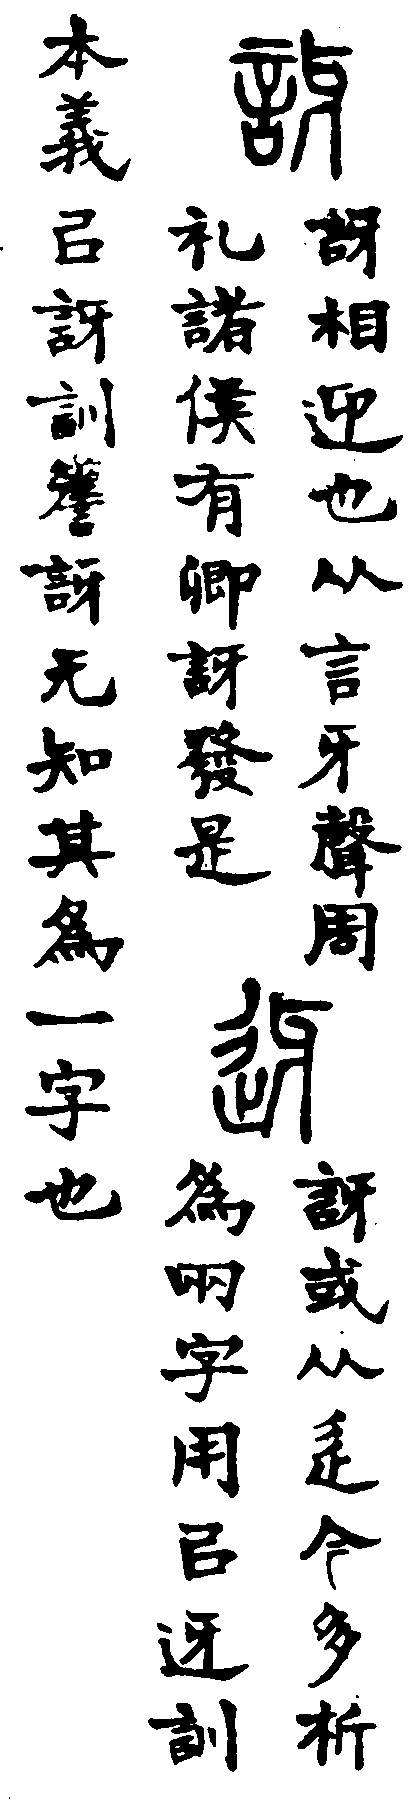 訝
訝相迎也从言牙聲周
礼諸侯有卿訝發是
迓
訝或从辵今多析
為兩字用㠯迓訓
本義㠯訝訓訝无知其為一字也